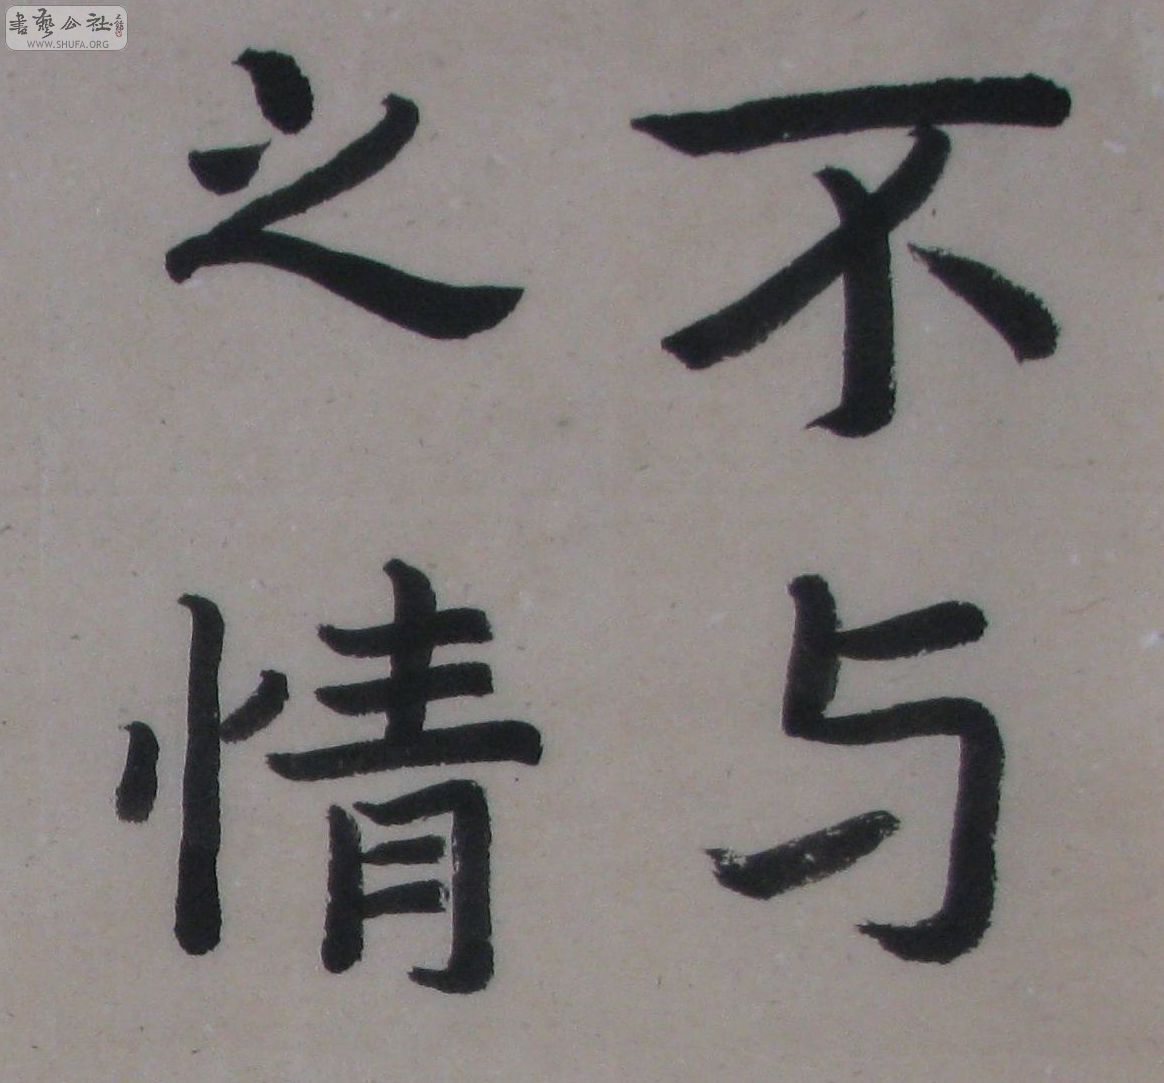 不与
之情
書藝公社
WWW.SHUFA.ORG